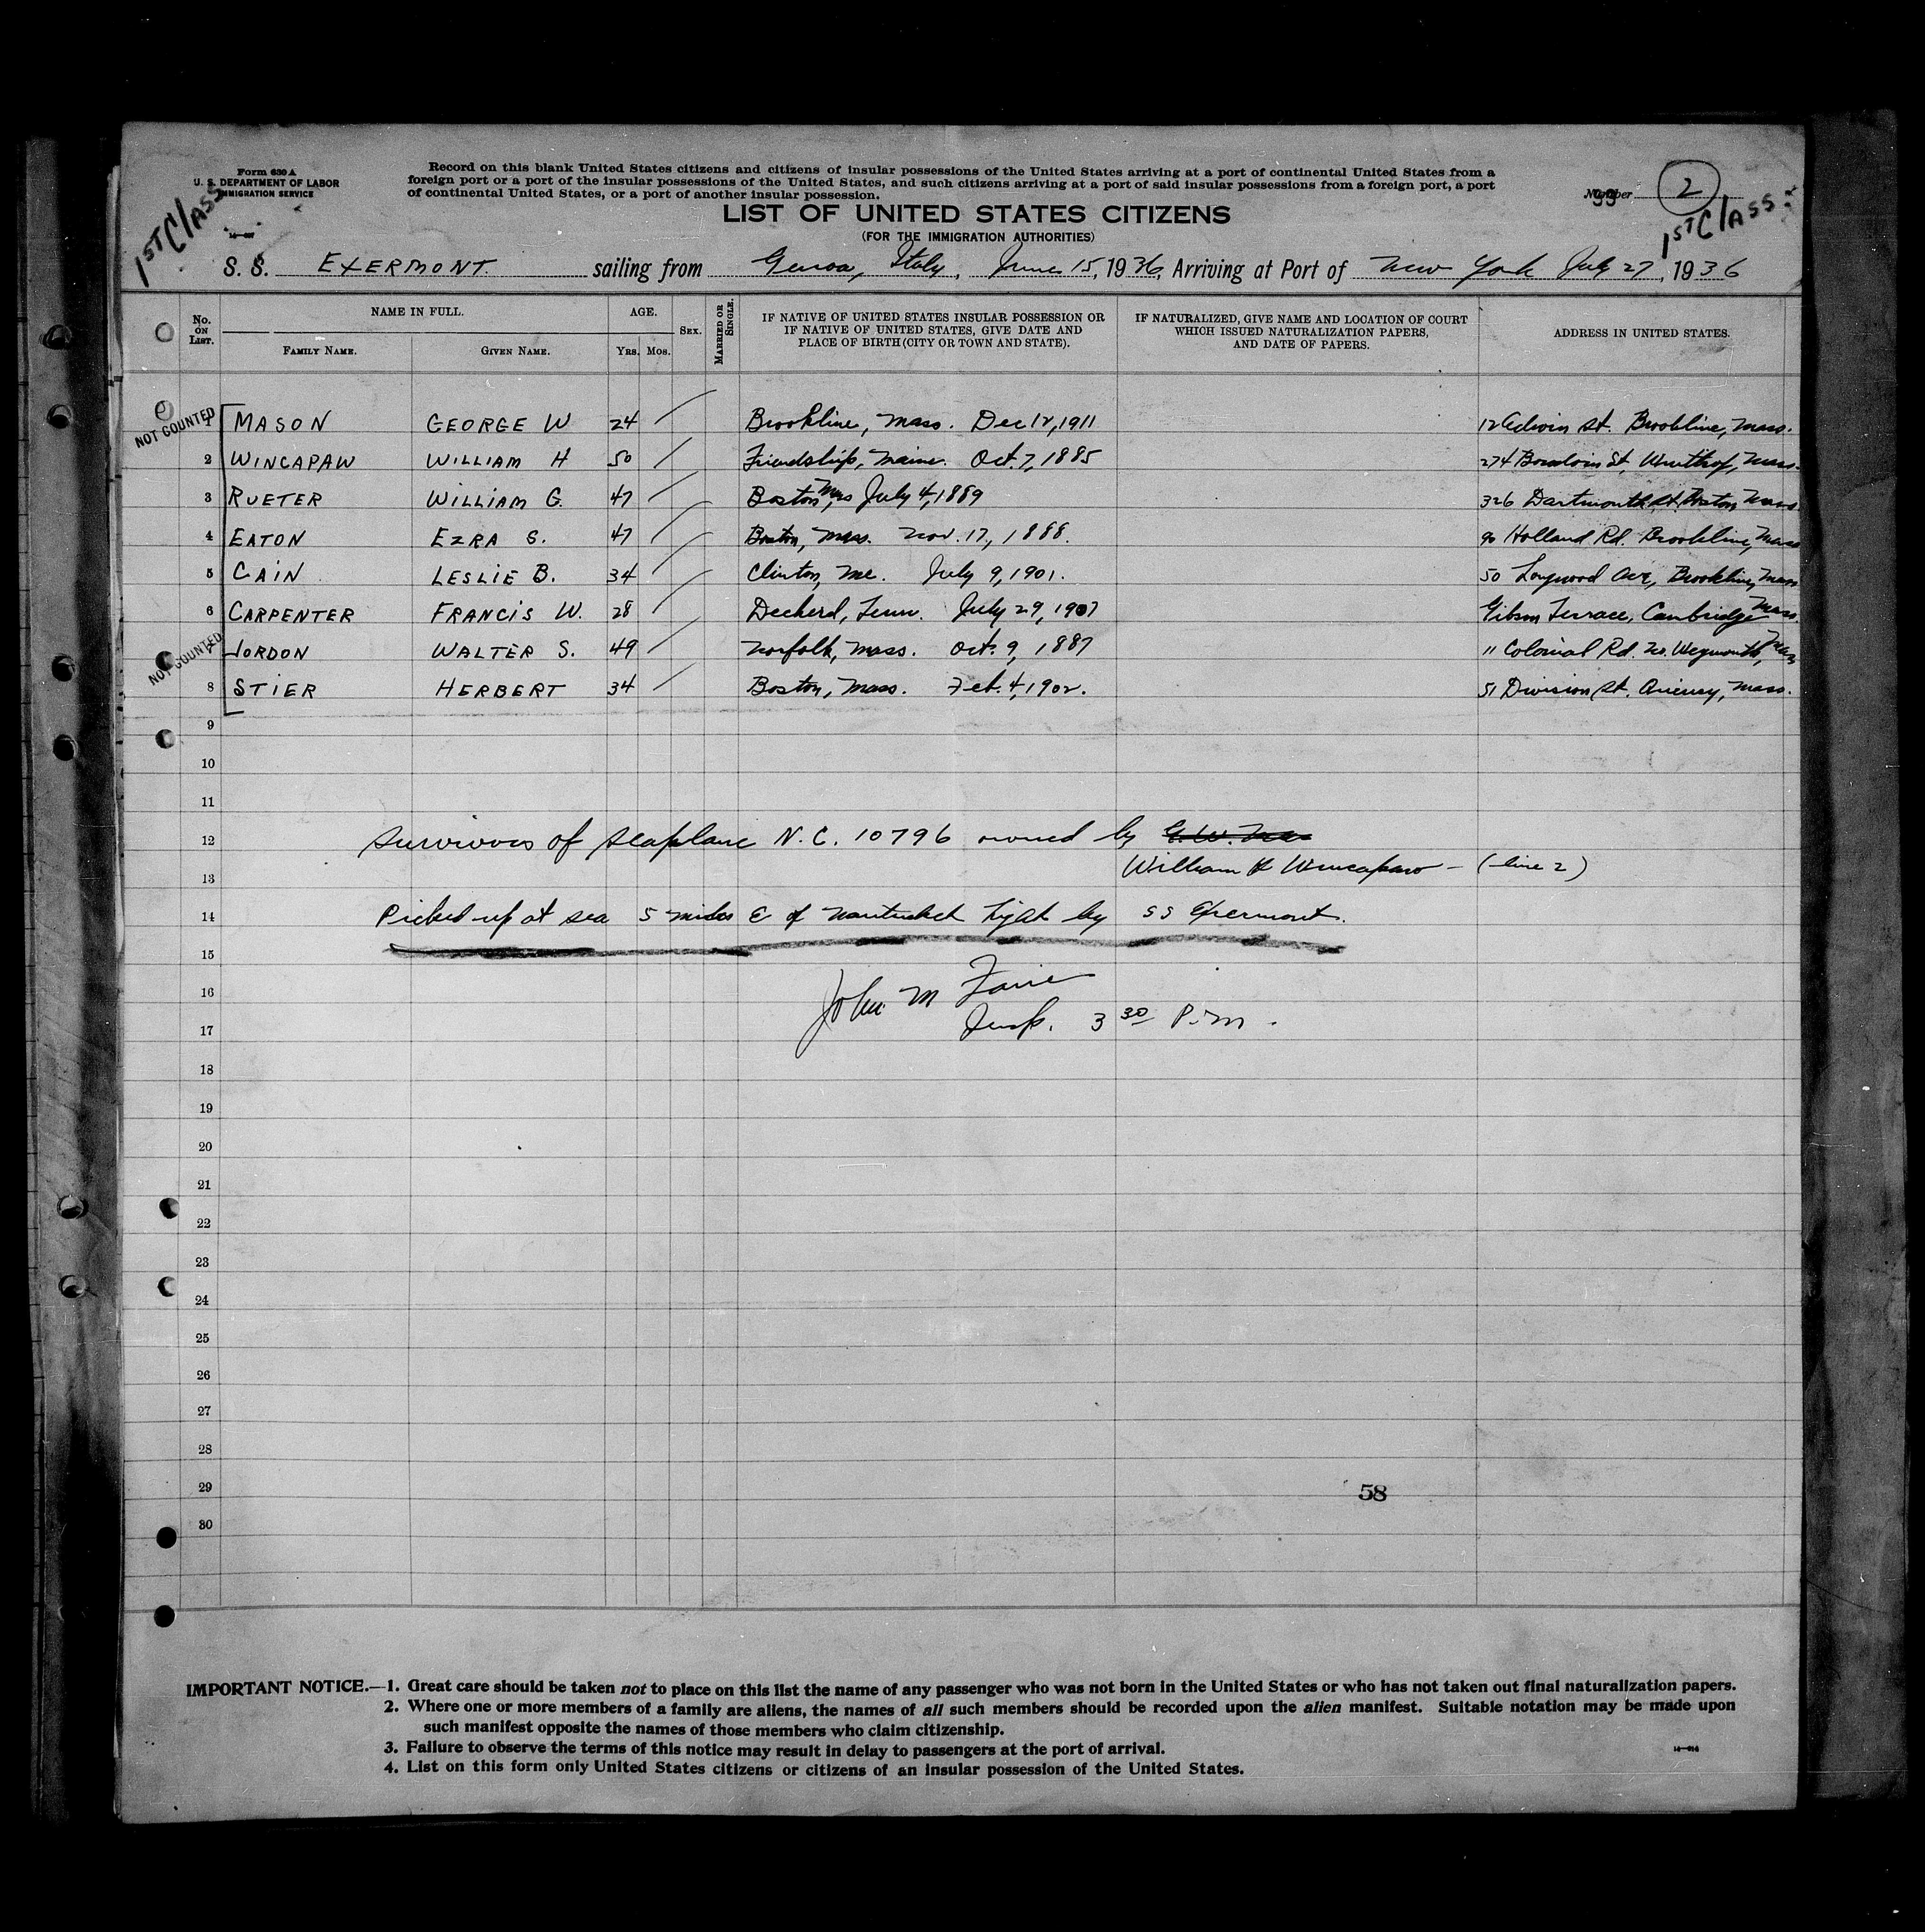 Form 630 A
U. S. DEPARTMENT OF LABOR
IMMIGRATION SERVICE
1ST CLASS
Record on this blank United States citizens and citizens of insular possessions of the United States arriving at a port of continental United States from a
foreign port or a port of the insular possessions of the United States, and such citizens arriving at a port of said insular possessions from a foreign port, a port
of continental United States, or a port of another insular possession.
Number 2
1ST CLASS
LIST OF UNITED STATES CITIZENS
(FOR THE IMMIGRATION AUTHORITIES)
S. S. EXERMONT. sailing from Genoa, Italy, June 15, 1936, Arriving at Port of New York July 27, 1936
No. ON LIST.
NAME IN FULL.
FAMILY NAME. GIVEN NAME.
AGE.
YRS. MOS.
SEX.
MARRIED OR SINGLE.
IF NATIVE OF UNITED STATES INSULAR POSSESSION OR
IF NATIVE OF UNITED STATES, GIVE DATE AND
PLACE OF BIRTH (CITY OR TOWN AND STATE).
IF NATURALIZED, GIVE NAME AND LOCATION OF COURT
WHICH ISSUED NATURALIZATION PAPERS,
AND DATE OF PAPERS.
ADDRESS IN UNITED STATES.
NOT COUNTED
1 MASON GEORGE W 24 Brookline, Mass. Dec 12, 1911 12 St. Brookline, Mass.
2 WINCAPAW WILLIAM H 50 Friendship, Maine. Oct. 7, 1885 274 Bowdoin St, Winthrop, Mass.
3 RUETER WILLIAM G. 47 Boston, Mass July 4, 1889 326 Dartmouth St. Boston Mass.
4 EATON EZRA S. 47 Boston, Mass. Nov. 17, 1888. 90 Holland Rd. Brookline, Mass
5 CAIN LESLIE B. 34 Clinton, Me. July 9, 1901. 50 Longwood Ave, Brookline, Mass
6 CARPENTER FRANCIS W. 28 Decherd, Tenn. July 29, 1907 Gibson Terrace, Cambridge Mass.
NOT COUNTED
7 JORDON WALTER S. 49 Norfolk, Mass. Oct. 9, 1887 11 Colonial Rd. No. Weymouth, Mass
8 STIER HERBERT 34 Boston, Mass. Feb. 4, 1902. 51 Division St. Quincy, Mass.
9
10
11
12 Survivors of seaplane N.C. 10796 owned by
13 William H Wincapaw - (line 2)
14 Picked up at sea 5 miles E of Nantucket Light by SS Exermont.
15
16 John M
17 Insp. 3 30 P.M.
18
19
20
21
22
23
24
25
26
27
28
29 58
30
IMPORTANT NOTICE.—1. Great care should be taken not to place on this list the name of any passenger who was not born in the United States or who has not taken out final naturalization papers.
2. Where one or more members of a family are aliens, the names of all such members should be recorded upon the alien manifest. Suitable notation may be made upon
such manifest opposite the names of those members who claim citizenship.
3. Failure to observe the terms of this notice may result in delay to passengers at the port of arrival.
4. List on this form only United States citizens or citizens of an insular possession of the United States.